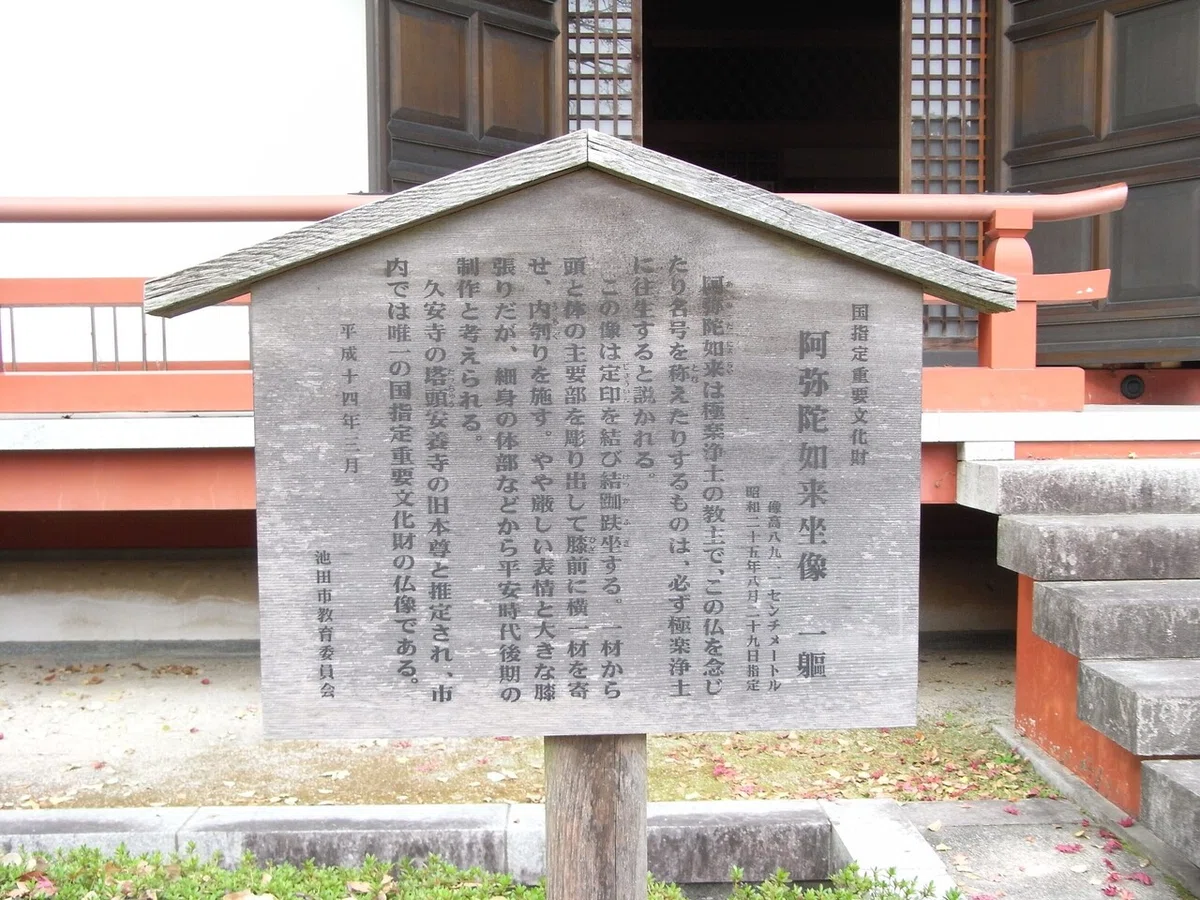 国指定重要文化財
阿弥陀如来坐像　一軀
像高八九．一センチメートル
昭和二十五年八月二十九日指定
阿弥陀如来は極楽浄土の教主で、この仏を念じ
たり名号を称えたりするものは、必ず極楽浄土
に往生すると説かれる。
この像は定印を結び結跏趺坐する。一材から
頭と体の主要部を彫り出して膝前に横一材を寄
せ、内刳りを施す。やや厳しい表情と大きな膝
張りだが、細身の体部などから平安時代後期の
制作と考えられる。
久安寺の塔頭安養寺の旧本尊と推定され、市
内では唯一の国指定重要文化財の仏像である。
平成十四年三月
池田市教育委員会